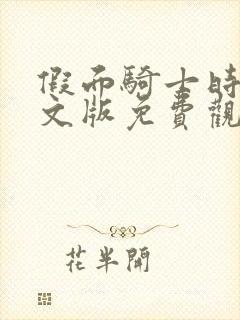 假面騎士時
文版免費觀
花半開